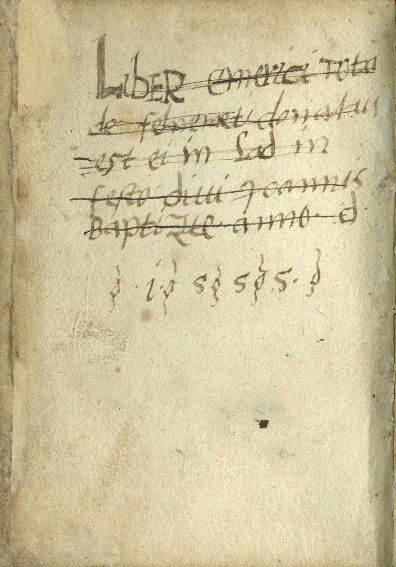 LibER emerici toto
de feveret donatus
est ei in Lad in
festo divi Joannis
Baptiste anno d
1 5 5 5